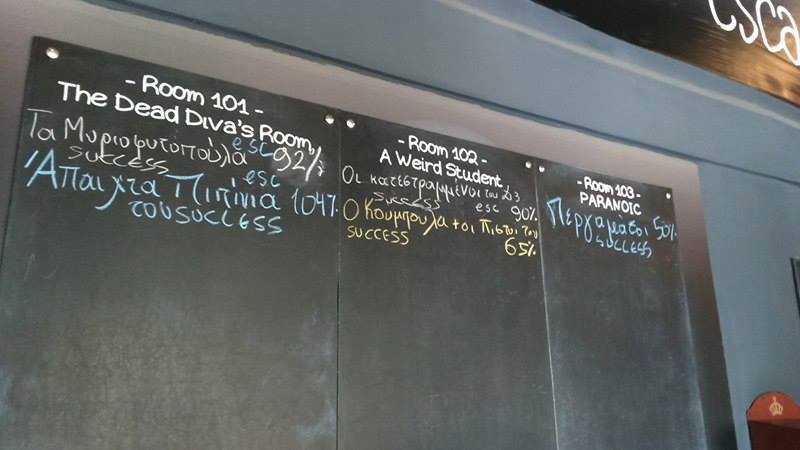 esca
- Room 101 -
The Dead Diva's Room
Τα Μυριοφυτόπουλα esc 92%
success
Άπαιχτα Πιπίνια esc 104%
του success
- Room 102 -
A Weird Student
Οι κατεστραμμένοι του Δ3
success esc 90%
Ο Κουμπουλα + οι Πιστοι του
success 65%
- Room 103 -
PARANOIC
Περγαμάτοι 50%
success